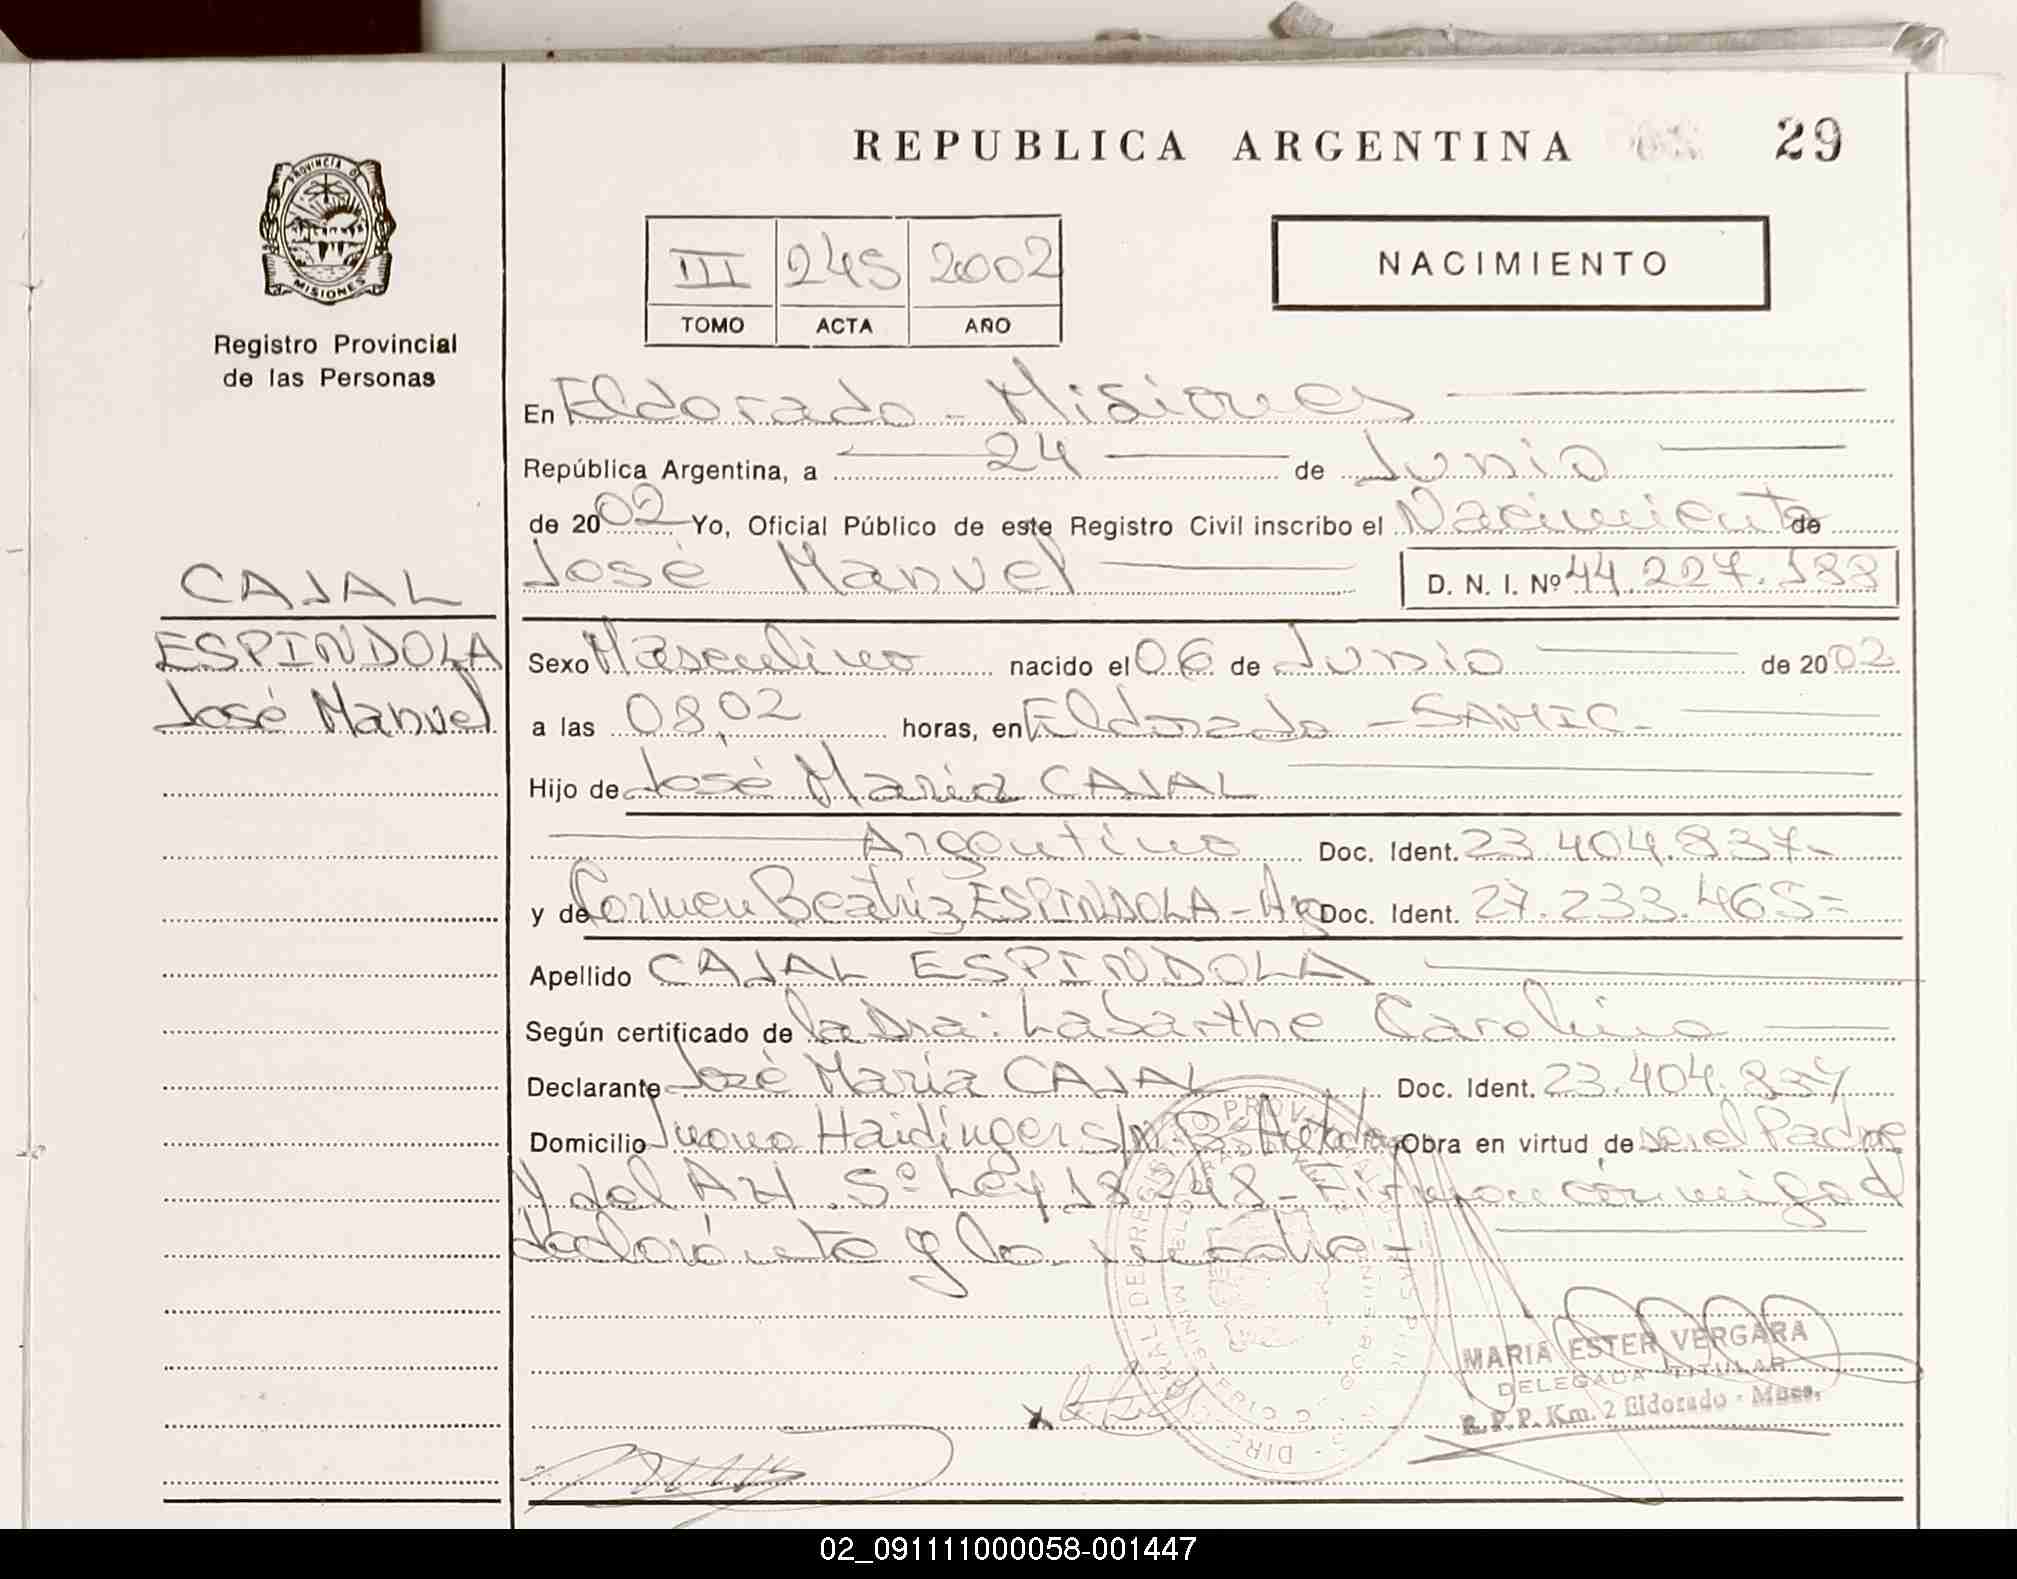 REPUBLICA ARGENTINA 29
PROVINCIA DE
MISIONES
Registro Provincial
de las Personas
III 245 2002
TOMO ACTA AÑO
NACIMIENTO
En Eldorado - Misiones
República Argentina, a 24 de Junio
de 2002 Yo, Oficial Público de este Registro Civil inscribo el Nacimiento de
José Manuel D. N. I. Nº 44.227.188
CAJAL
ESPINDOLA
José Manuel
Sexo Masculino nacido el 06 de Junio de 2002
a las 08,02 horas, en Eldorado - SAMIC -
Hijo de José María CAJAL
Argentino Doc. Ident. 23.404.837-
y de Carmen Beatriz ESPINDOLA - Arg Doc. Ident. 27.233.465=
Apellido CAJAL ESPINDOLA
Según certificado de la Dra: Labarthe Carolina
Declarante José María CAJAL Doc. Ident. 23.404.837
Domicilio Juana Haidinger s/n Obra en virtud de ser el Padre
y del Art. 5º Ley 18.248 - Firman conmigo el
declarante y la madre -
MARIA ESTER VERGARA
DELEGADA TITULAR
R.P.P. Km. 2 Eldorado - Mnes.
02_091111000058-001447